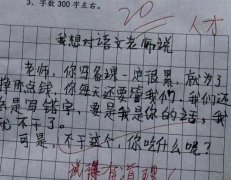 3、字数300字左右。
20
人才
我想对语文老师说
老师，你写备课一定很累，就为了
挣那点钱，你每天还要管我们，我们还
总是写错字，要是我是你的话，我
就不干了。
可是，不干这个，你吃什么呢？